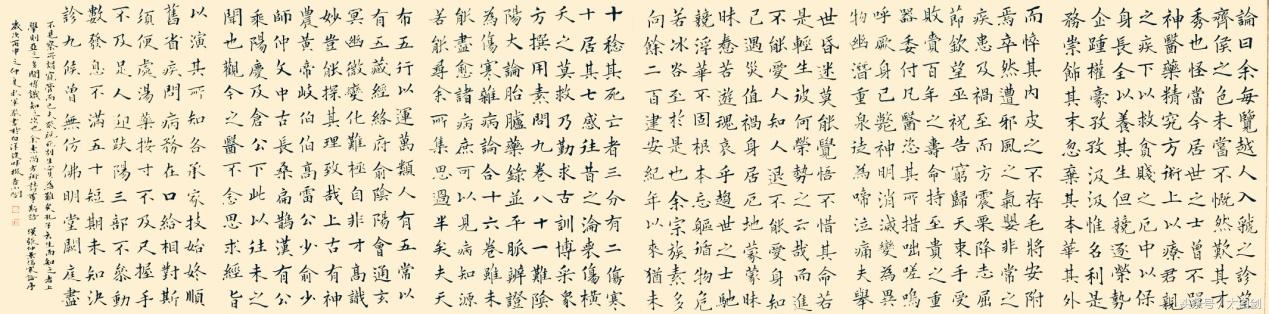 論曰余每覽越人入虢之診望
齊侯之色未嘗不慨然歎其才
秀也怪當今居世之士曾不留
神醫藥精究方術上以療君親
之疾下以救貧賤之厄中以保
身長全以養其生但競逐榮勢
企踵權豪孜孜汲汲惟名利是
務崇飾其末忽棄其本華其外
而悴其內皮之不存毛將安附
焉卒然遭邪風之氣嬰非常之
疾患及禍至而方震栗降志屈
節欽望巫祝告窮歸天束手受
敗賫百年之壽命持至貴之重
器委付凡醫恣其所措咄嗟嗚
呼厥身已斃神明消滅變為異
物幽潛重泉徒為啼泣痛夫舉
世昏迷莫能覺悟不惜其命若
是輕生彼何榮勢之云哉而進
不能愛人知人退不能愛身知
己遇災值禍身居厄地蒙蒙昧
昧蠢若遊魂哀乎趨世之士馳
競浮華不固根本忘軀徇物危
若冰谷至於是也余宗族素多
向餘二百建安紀年以來猶未
十稔其死亡者三分有二傷寒
十居其七感往昔之淪喪傷橫
夭之莫救乃勤求古訓博采眾
方撰用素問九卷八十一難陰
陽大論胎臚藥錄並平脈辨證
為傷寒雜病論合十六卷雖未
能盡愈諸病庶可以見病知源
若能尋余所集思過半矣夫天
布五行以運萬類人有五常以
有五藏經絡府俞陰陽會通玄
冥幽微變化難極自非才高識
妙豈能探其理致哉上古有神
農黃帝岐伯伯高雷公少俞少
師仲文中古長桑扁鵲漢有公
乘陽慶及倉公下此以往未之
聞也觀今之醫不念思求經旨
以演其所知各承家技始終順
舊省疾問病務在口給相對斯
須便處湯藥按寸不及尺握手
不及足人迎趺陽三部不參動
數發息不滿五十短期未知決
診九候曾無仿佛明堂闕庭盡
不見察所謂窺管而已夫欲視死別生實為難矣孔子云生而知之者上
學則亞之多聞博識知之次也余宿尚方術請事斯語 漢張仲景傷寒論序